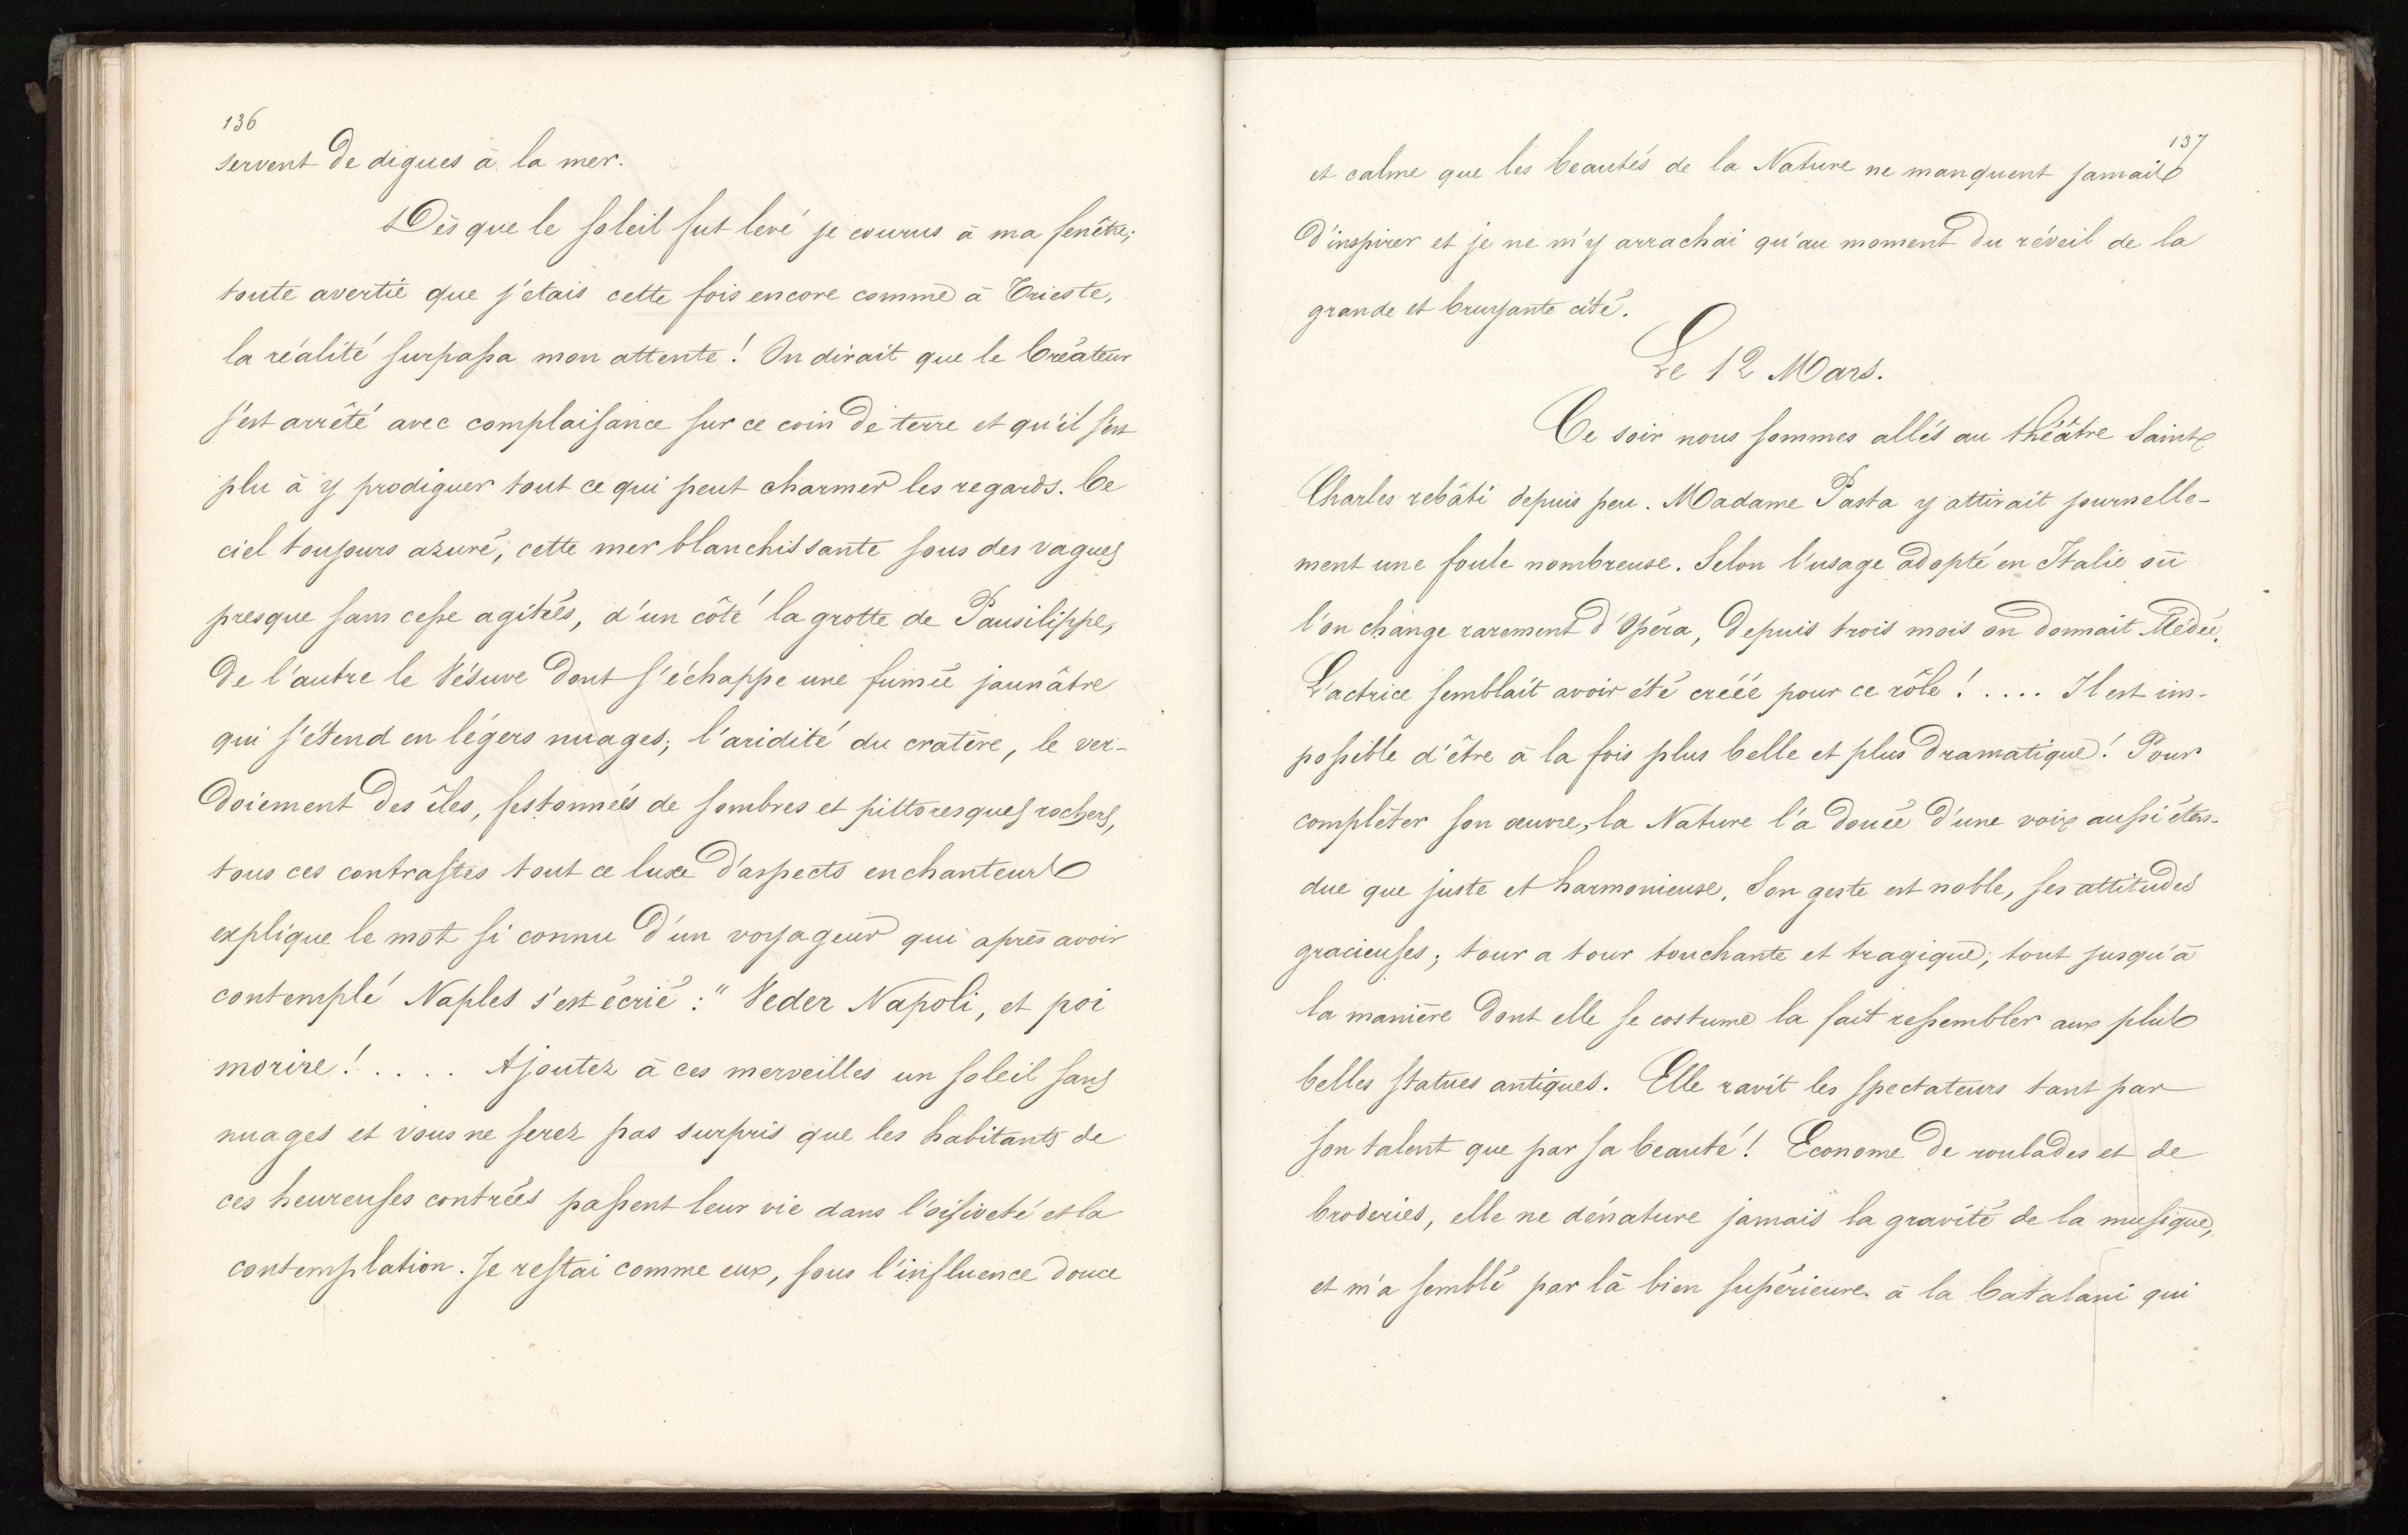 136
servent de digues à la mer.
Dès que le soleil fut levé je courus à ma fenêtre;
toute avertie que j'étais cette fois encore comme à Trieste,
la réalité surpassa mon attente! On dirait que le Créateur
s'est arrêté avec complaisance sur ce coin de terre et qu'il s'est
plu à y prodiguer tout ce qui peut charmer les regards. Ce
ciel toujours azuré, cette mer blanchissante sous des vagues
presque sans cesse agitées, d'un côté la grotte de Pausilippe,
de l'autre le Vésuve dont s'échappe une fumée jaunâtre
qui s'étend en légers nuages; l'aridité du cratère, le ver-
doiement des îles, festonnées de sombres et pittoresques rochers,
tous ces contrastes tout ce luxe d'aspects enchanteurs
explique le mot si connu d'un voyageur qui après avoir
contemplé Naples s'est écrié: " Veder Napoli, et poi
morire! . . . . Ajoutez à ces merveilles un soleil sans
nuages et vous ne serez pas surpris que les habitants de
ces heureuses contrées passent leur vie dans l'oisiveté et la
contemplation. Je restai comme eux, sous l'influence douce
137
et calme que les beautés de la Nature ne manquent jamais
d'inspirer et je ne m'y arrachai qu'au moment du réveil de la
grande et bruyante cité.
Le 12 Mars.
Ce soir nous sommes allés au théâtre Saint
Charles rebâti depuis peu. Madame Pasta y attirait journelle-
ment une foule nombreuse. Selon l'usage adopté en Italie où
l'on change rarement d'Opéra, depuis trois mois on donnait Médée.
L'actrice semblait avoir été créée pour ce rôle! . . . . Il est im-
possible d'être à la fois plus belle et plus dramatique! Pour
compléter son œuvre, la Nature l'a douée d'une voix aussi éten-
due que juste et harmonieuse. Son geste est noble, ses attitudes
gracieuses; tour a tour touchante et tragique; tout jusqu'à
la manière dont elle se costume la fait ressembler aux plus
belles statues antiques. Elle ravit les spectateurs tant par
son talent que par sa beauté! Econome de roulades et de
broderies, elle ne dénature jamais la gravité de la musique,
et m'a semblé par là bien supérieure à la Catalani qui